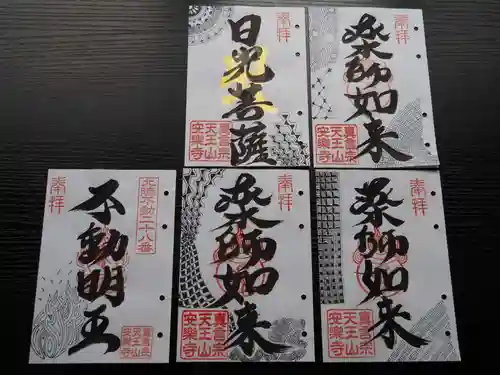 奉拝
日光菩薩
真言宗
天王山
安楽寺
奉拝
薬師如来
真言宗
天王山
安楽寺
奉拝
北陸不動二十八番
不動明王
真言宗
天王山
安楽寺
奉拝
薬師如来
真言宗
天王山
安楽寺
奉拝
薬師如来
真言宗
天王山
安楽寺